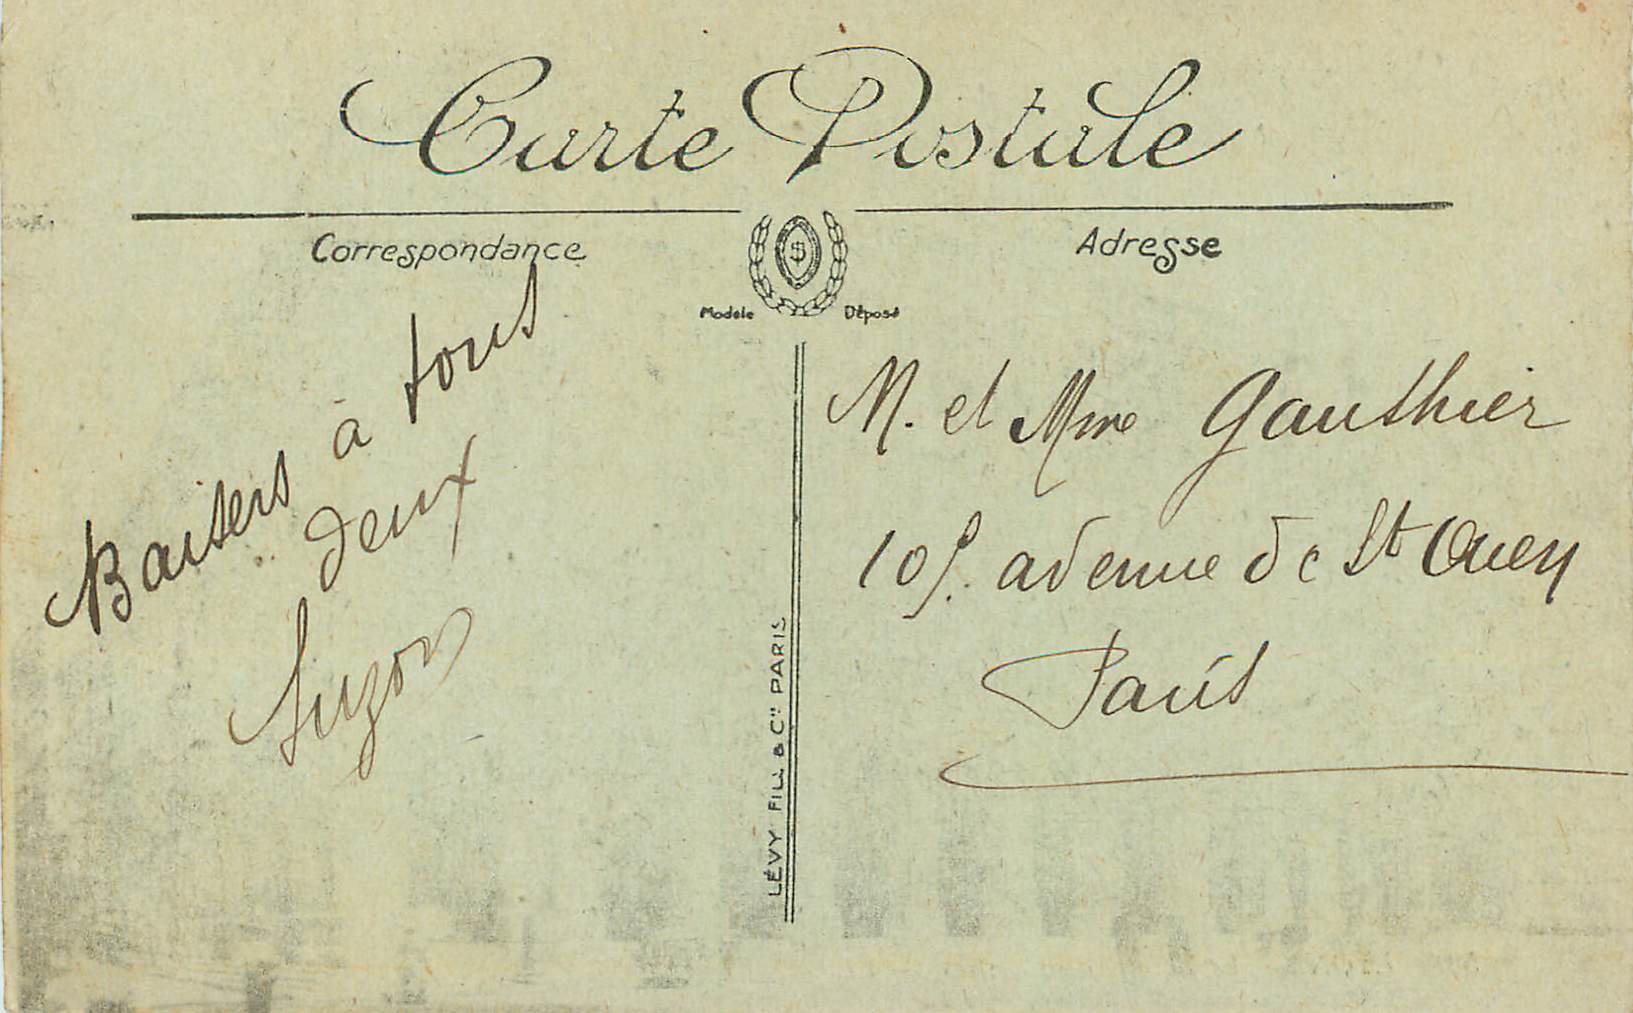 Carte Postale
Correspondance
Adresse
Modèle Déposé
Baisers à tous
deux
Suzon
M. et Mme Gauthier
105. avenue de St Ouen
Paris
LÉVY FILS & Cie PARIS